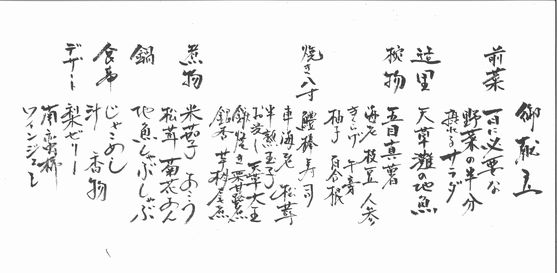 御献立
前菜
一日に必要な
野菜の半分
摂れるサラダ
造里
天草灘の地魚
椀物
五目真薯
海老 枝豆 人参
きくらげ 牛蒡
柚子 百合根
焼き八寸
鱧棒寿司
車海老 松茸
半熟玉子
天草大王
銀杏
煮物
米茄子 あこう
松茸 菊花あん
鍋
地魚しゃぶしゃぶ
食事
じゃこめし
汁 香物
デザート
梨ゼリー
南蛮柿
ワインジュレ